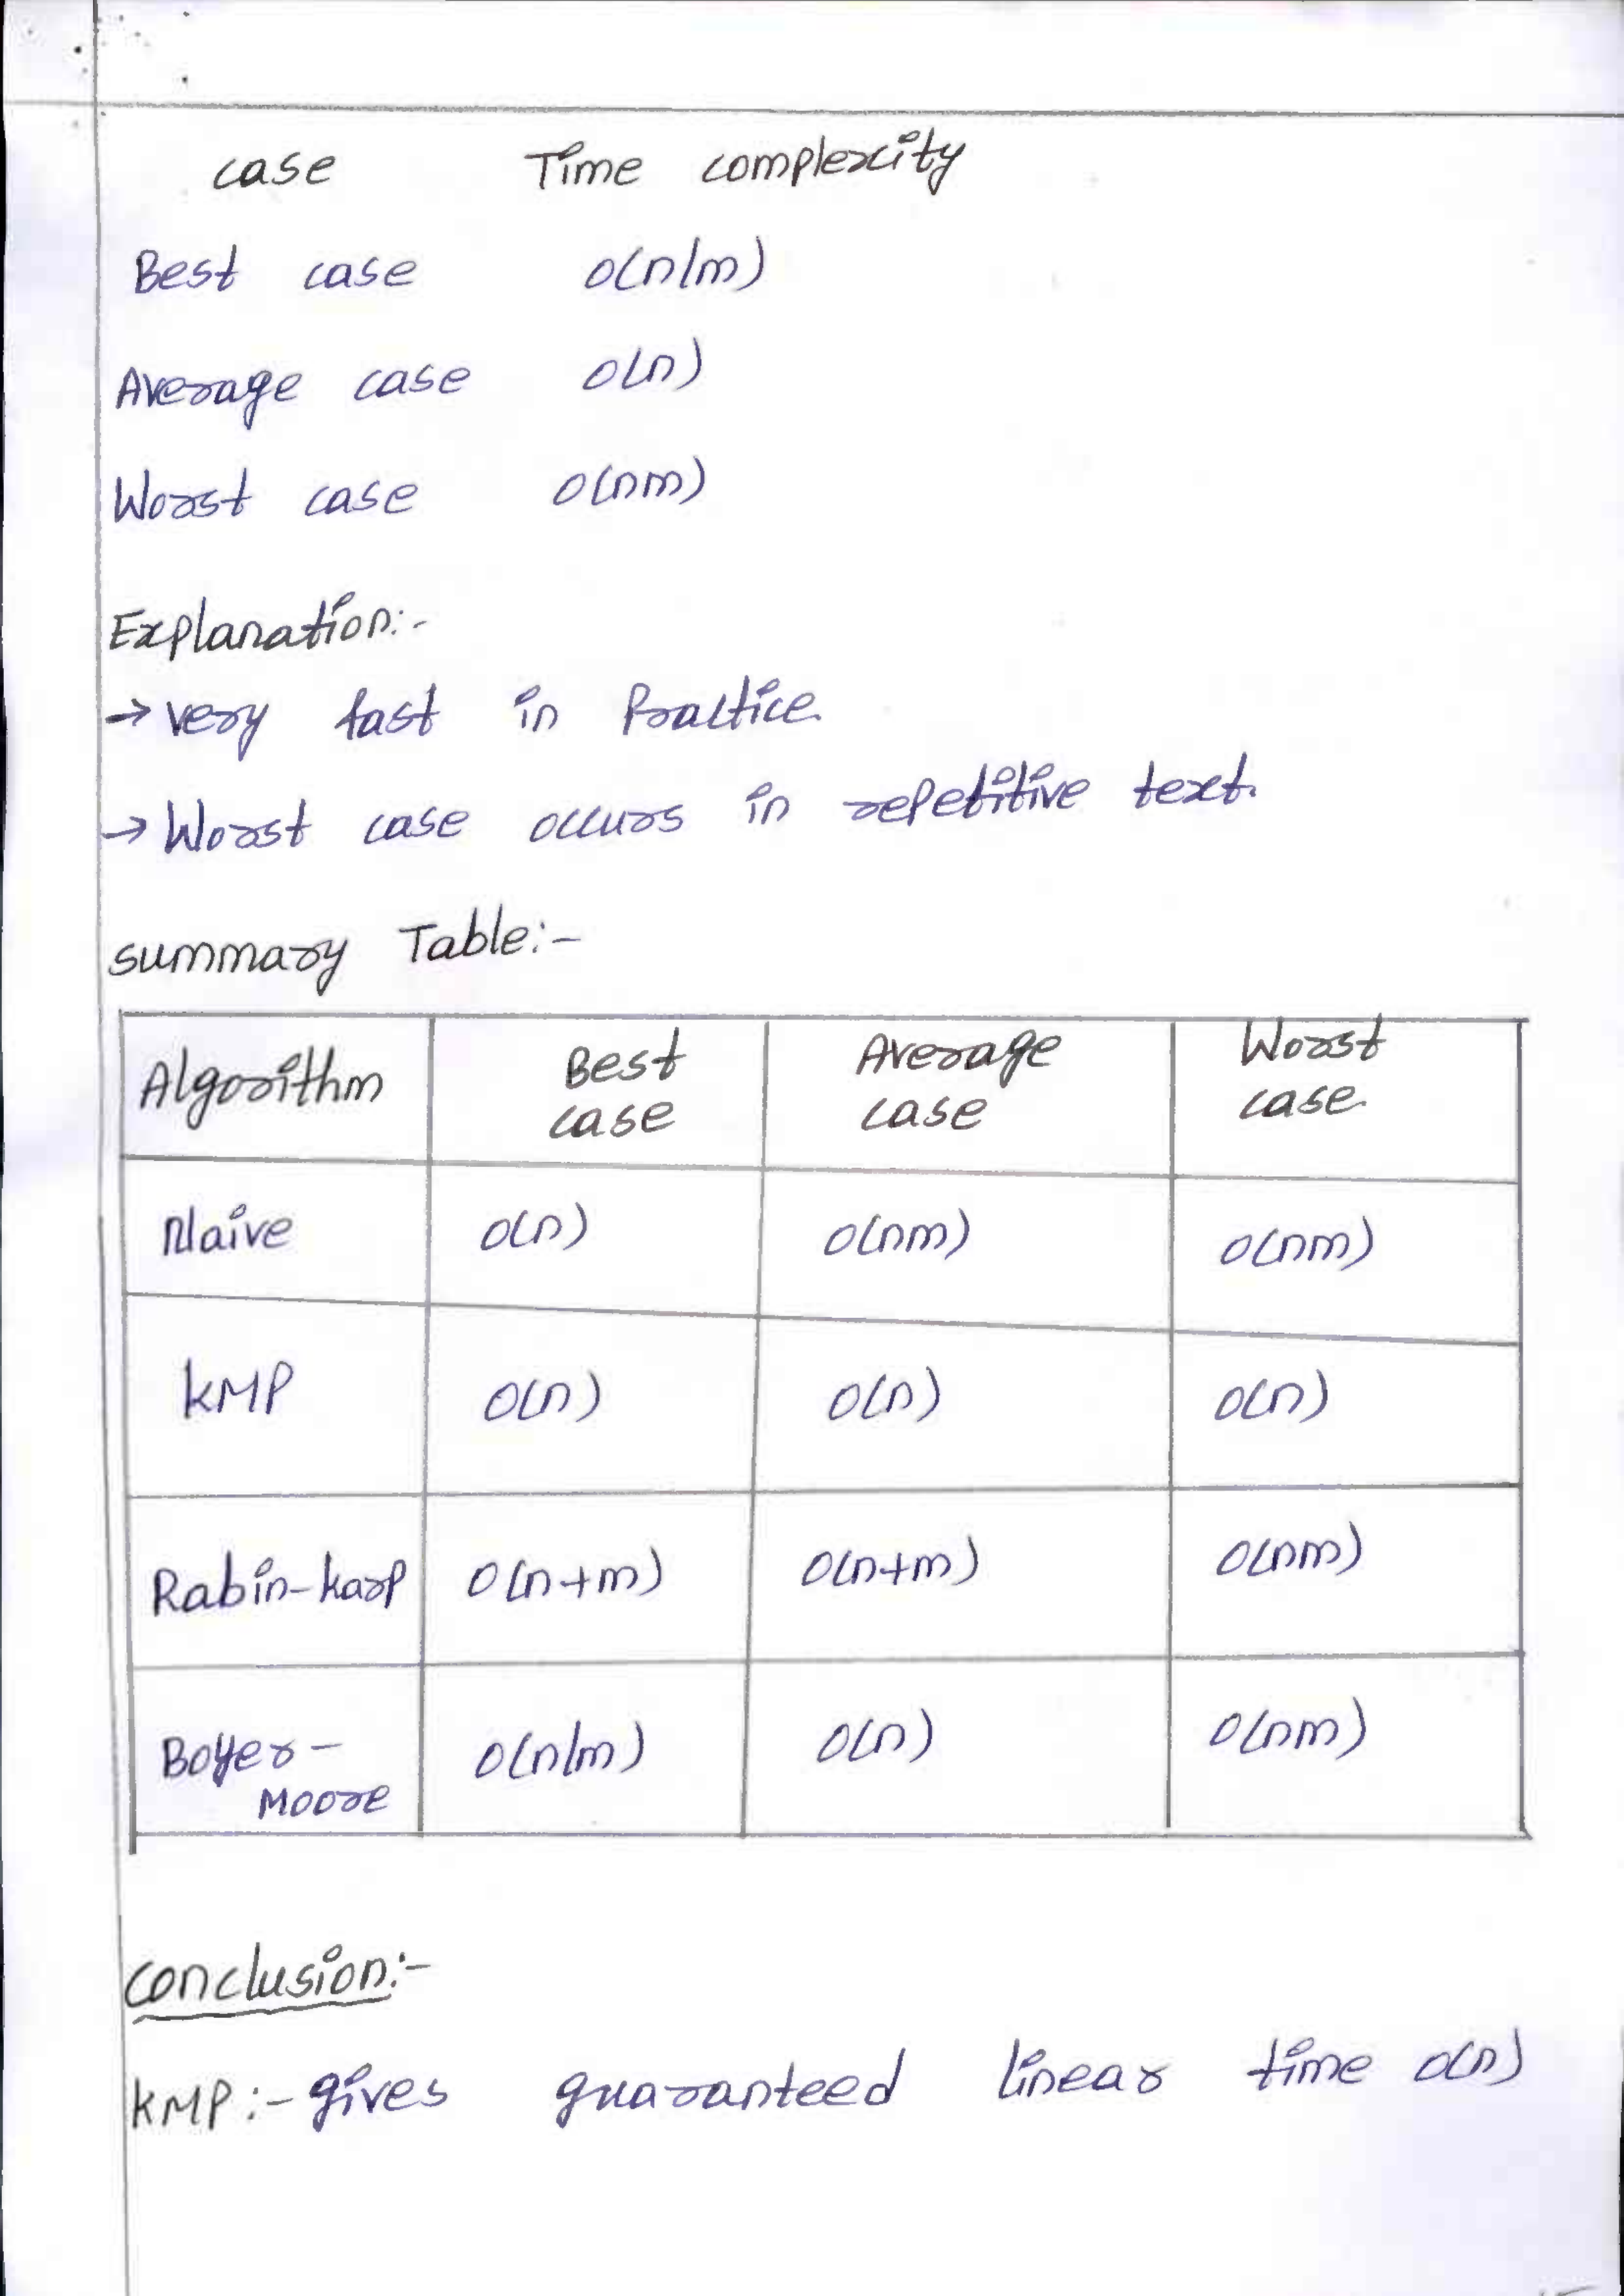 case Time complexcity
Best case o(n/m)
Average case o(n)
Worst case o(nm)
Explanation:-
→ very fast in Practice.
→ Worst case occurs in repetitive text.
summary Table:-
Algorithm Best case Average case Worst case.
Naive o(n) o(nm) o(nm)
KMP o(n) o(n) o(n)
Rabin-karp o(n+m) o(n+m) o(nm)
Boyer-Moore o(n/m) o(n) o(nm)
conclusion:-
KMP:- gives guaranteed linear time o(n)